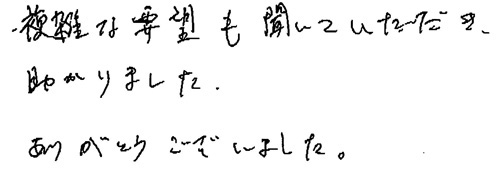 ・複雑な要望も聞いていただき、
助かりました.
ありがとうございました。